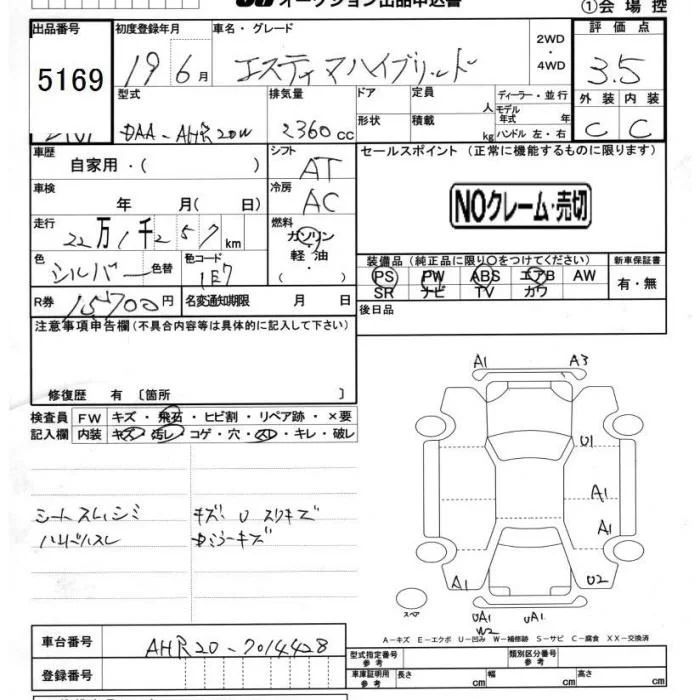 オークション出品申込書
①会場控
出品番号 初度登録年月 車名・グレード 評価点
5169 19 6月 エスティマハイブリッド 2WD・4WD 3.5
型式 排気量 ドア 定員 人 ディーラー・並行 外装 内装
DAA-AHR20W 2360cc 形状 積載 kg モデル年式 年 ハンドル 左・右 C C
車歴 シフト セールスポイント (正常に機能するものに限ります)
自家用・( ) AT
車検 冷房
年 月( 日) AC
NOクレーム・売切
走行 燃料
22万1千257km ガソリン・軽油・( )
色 色替 色コード 装備品(純正品に限り○をつけてください) 新車保証書
シルバー 1E7 PS PW ABS エアB AW 有・無
SR ナビ TV カワ
R券 15700円 名変通知期限 月 日 後日品
注意事項申告欄(不具合内容等は具体的に記入して下さい)
修復歴 有 〔箇所 〕
検査員 FW キズ・飛石・ヒビ割・リペア跡・×要
記入欄 内装 キズ・汚レ・コゲ・穴・スレ・キレ・破レ
シートスレ、シミ キズ、U スリキズ
A1 A3
U1
A1
A1
A1 U2
スペア UA1 UA1
W2
A-キズ E-エクボ U-凹み W-補修跡 S-サビ C-腐食 XX-交換済
車台番号 AHR20-7014428
登録番号
型式指定番号 参考 類別区分番号 参考
車庫証明用 参考 長さ cm 幅 cm 高さ cm